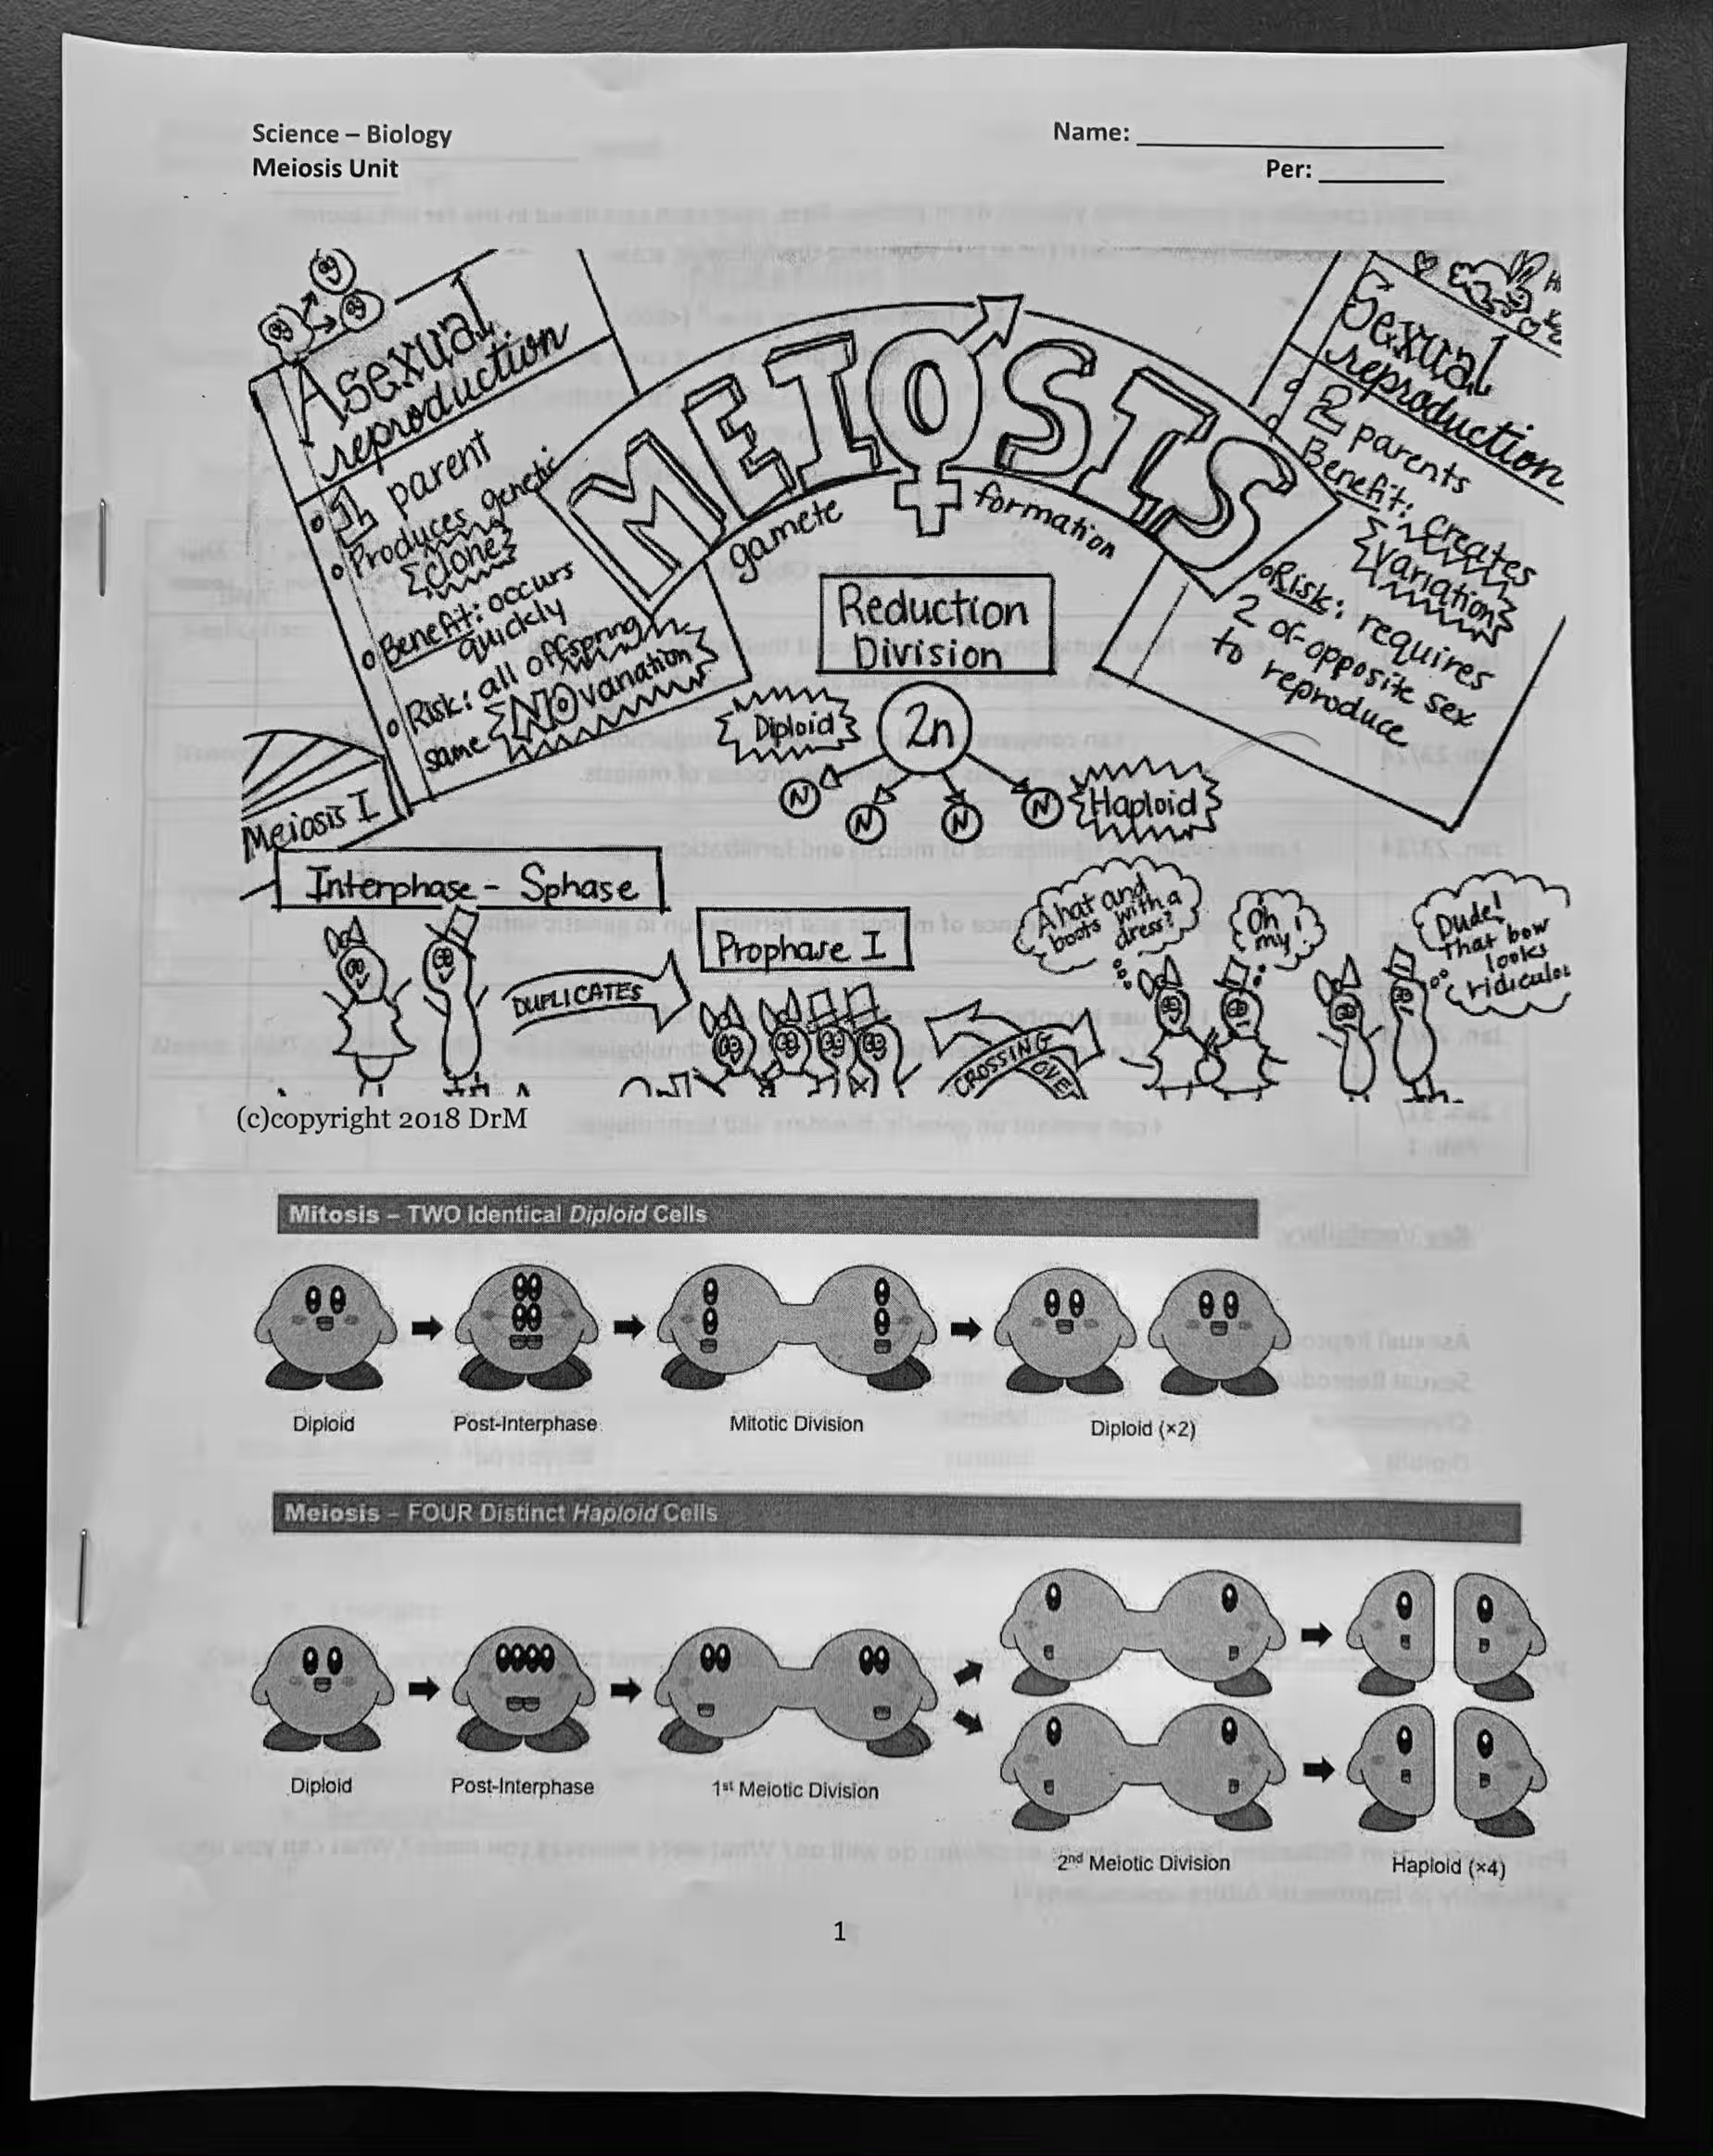 Science – Biology
Name:
Meiosis Unit
Per:
Asexual
reproduction
1 parent
Produces genetic
clone
Benefit: occurs
quickly
Risk: all offspring
same NO variation
MEIOSIS
gamete formation
Reduction
Division
Diploid
2n
N
N
N
N
Haploid
Sexual
reproduction
2 parents
Benefit: creates
variation
Risk: requires
2 of opposite sex
to reproduce
Meiosis I
Interphase - Sphase
DUPLICATES
Prophase I
CROSSING
OVER
A hat and
boots with a
dress?
Oh
my!
Dude!
That bow
looks
(c)copyright 2018 DrM
Mitosis – TWO Identical Diploid Cells
Diploid
Post-Interphase
Mitotic Division
Diploid (×2)
Meiosis – FOUR Distinct Haploid Cells
Diploid
Post-Interphase
1st Meiotic Division
2nd Meiotic Division
Haploid (×4)
1